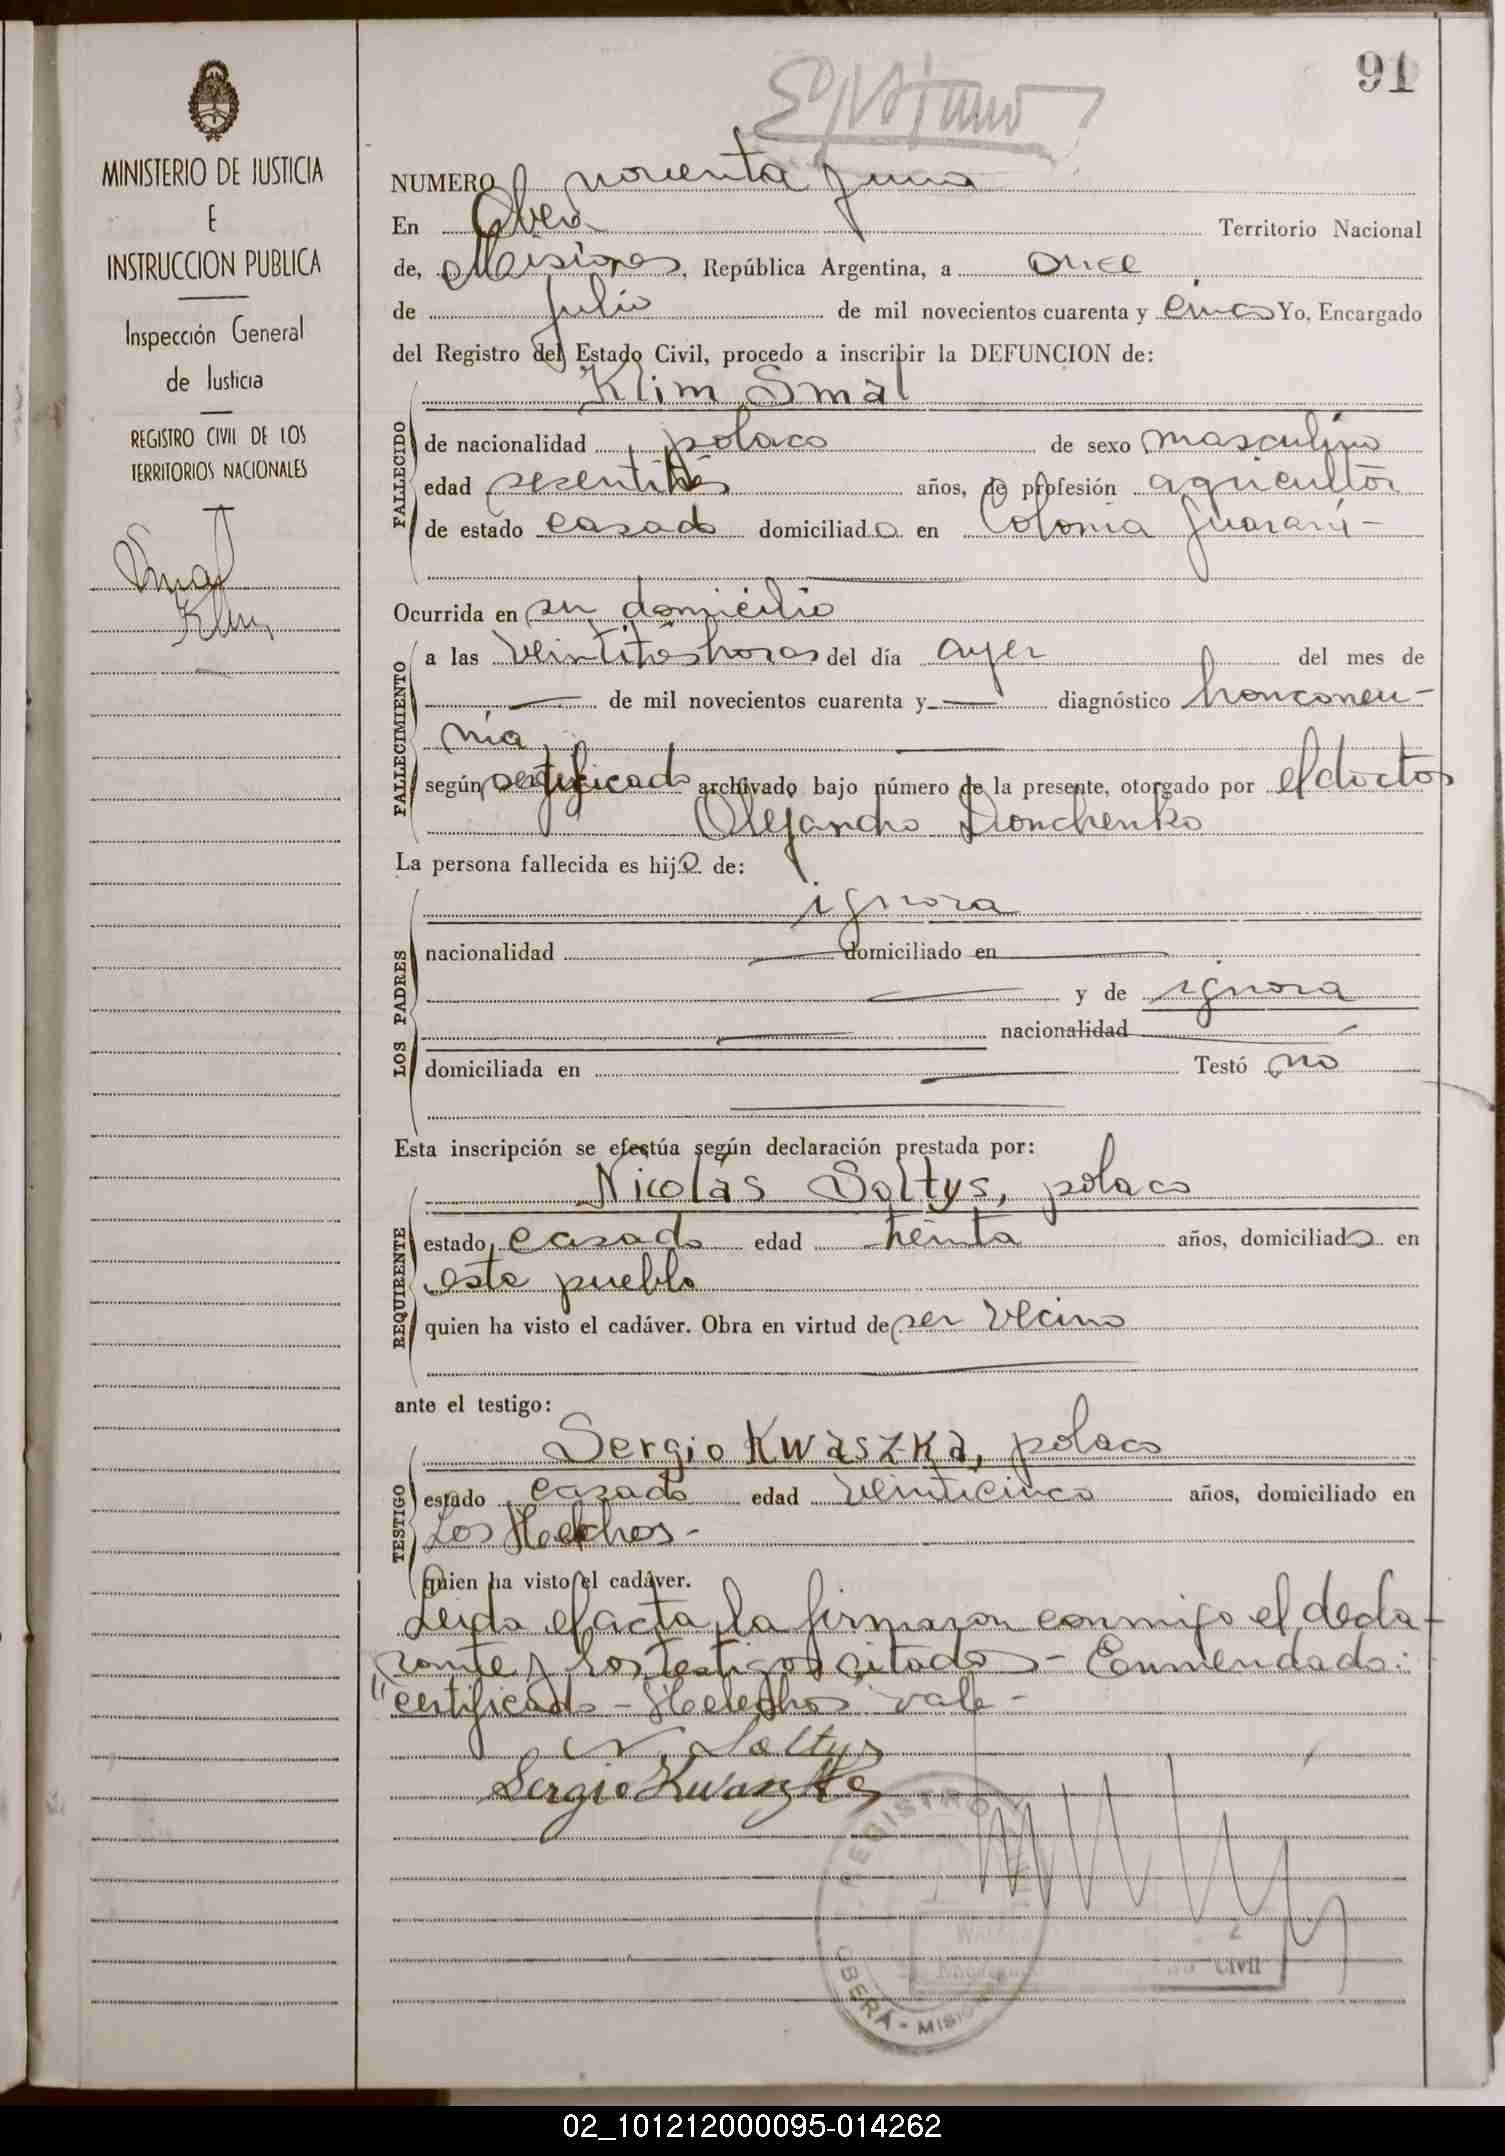 91
MINISTERIO DE JUSTICIA
E
INSTRUCCION PUBLICA
Inspección General
de Justicia
REGISTRO CIVIL DE LOS
TERRITORIOS NACIONALES
Smal
Klim
NUMERO noventa y uno
En Oberá Territorio Nacional
de, Misiones, República Argentina, a once
de julio de mil novecientos cuarenta y cinco Yo, Encargado
del Registro del Estado Civil, procedo a inscribir la DEFUNCION de:
Klim Smal
FALLECIDO
de nacionalidad polaco de sexo masculino
edad años, de profesión agricultor
de estado casado domiciliado en Colonia Guaraní-
Ocurrida en su domicilio
FALLECIMIENTO
a las veintitrés horas del día ayer del mes de
— de mil novecientos cuarenta y — diagnóstico bronconeu-
mía
según certificado archivado bajo número de la presente, otorgado por el doctor
Alejandro Dronchenko
La persona fallecida es hijo de:
LOS PADRES
ignora
nacionalidad — domiciliado en —
— y de ignora
— nacionalidad —
domiciliada en — Testó no
Esta inscripción se efectúa según declaración prestada por:
REQUIRENTE
Nicolás Soltys, polaco
estado casado edad treinta años, domiciliado en
este pueblo
quien ha visto el cadáver. Obra en virtud de ser vecino
ante el testigo:
TESTIGO
Sergio Kwaszka, polaco
estado casado edad veinticinco años, domiciliado en
Los Helechos-
quien ha visto el cadáver.
Leída el acta, la firmaron conmigo el decla-
rante y los testigos citados - Enmendado:
"certificado - Helechos" vale -
N. Soltys
Sergio Kwaszka
REGISTRO CIVIL
OBERÁ - MISIONES
02_101212000095-014262